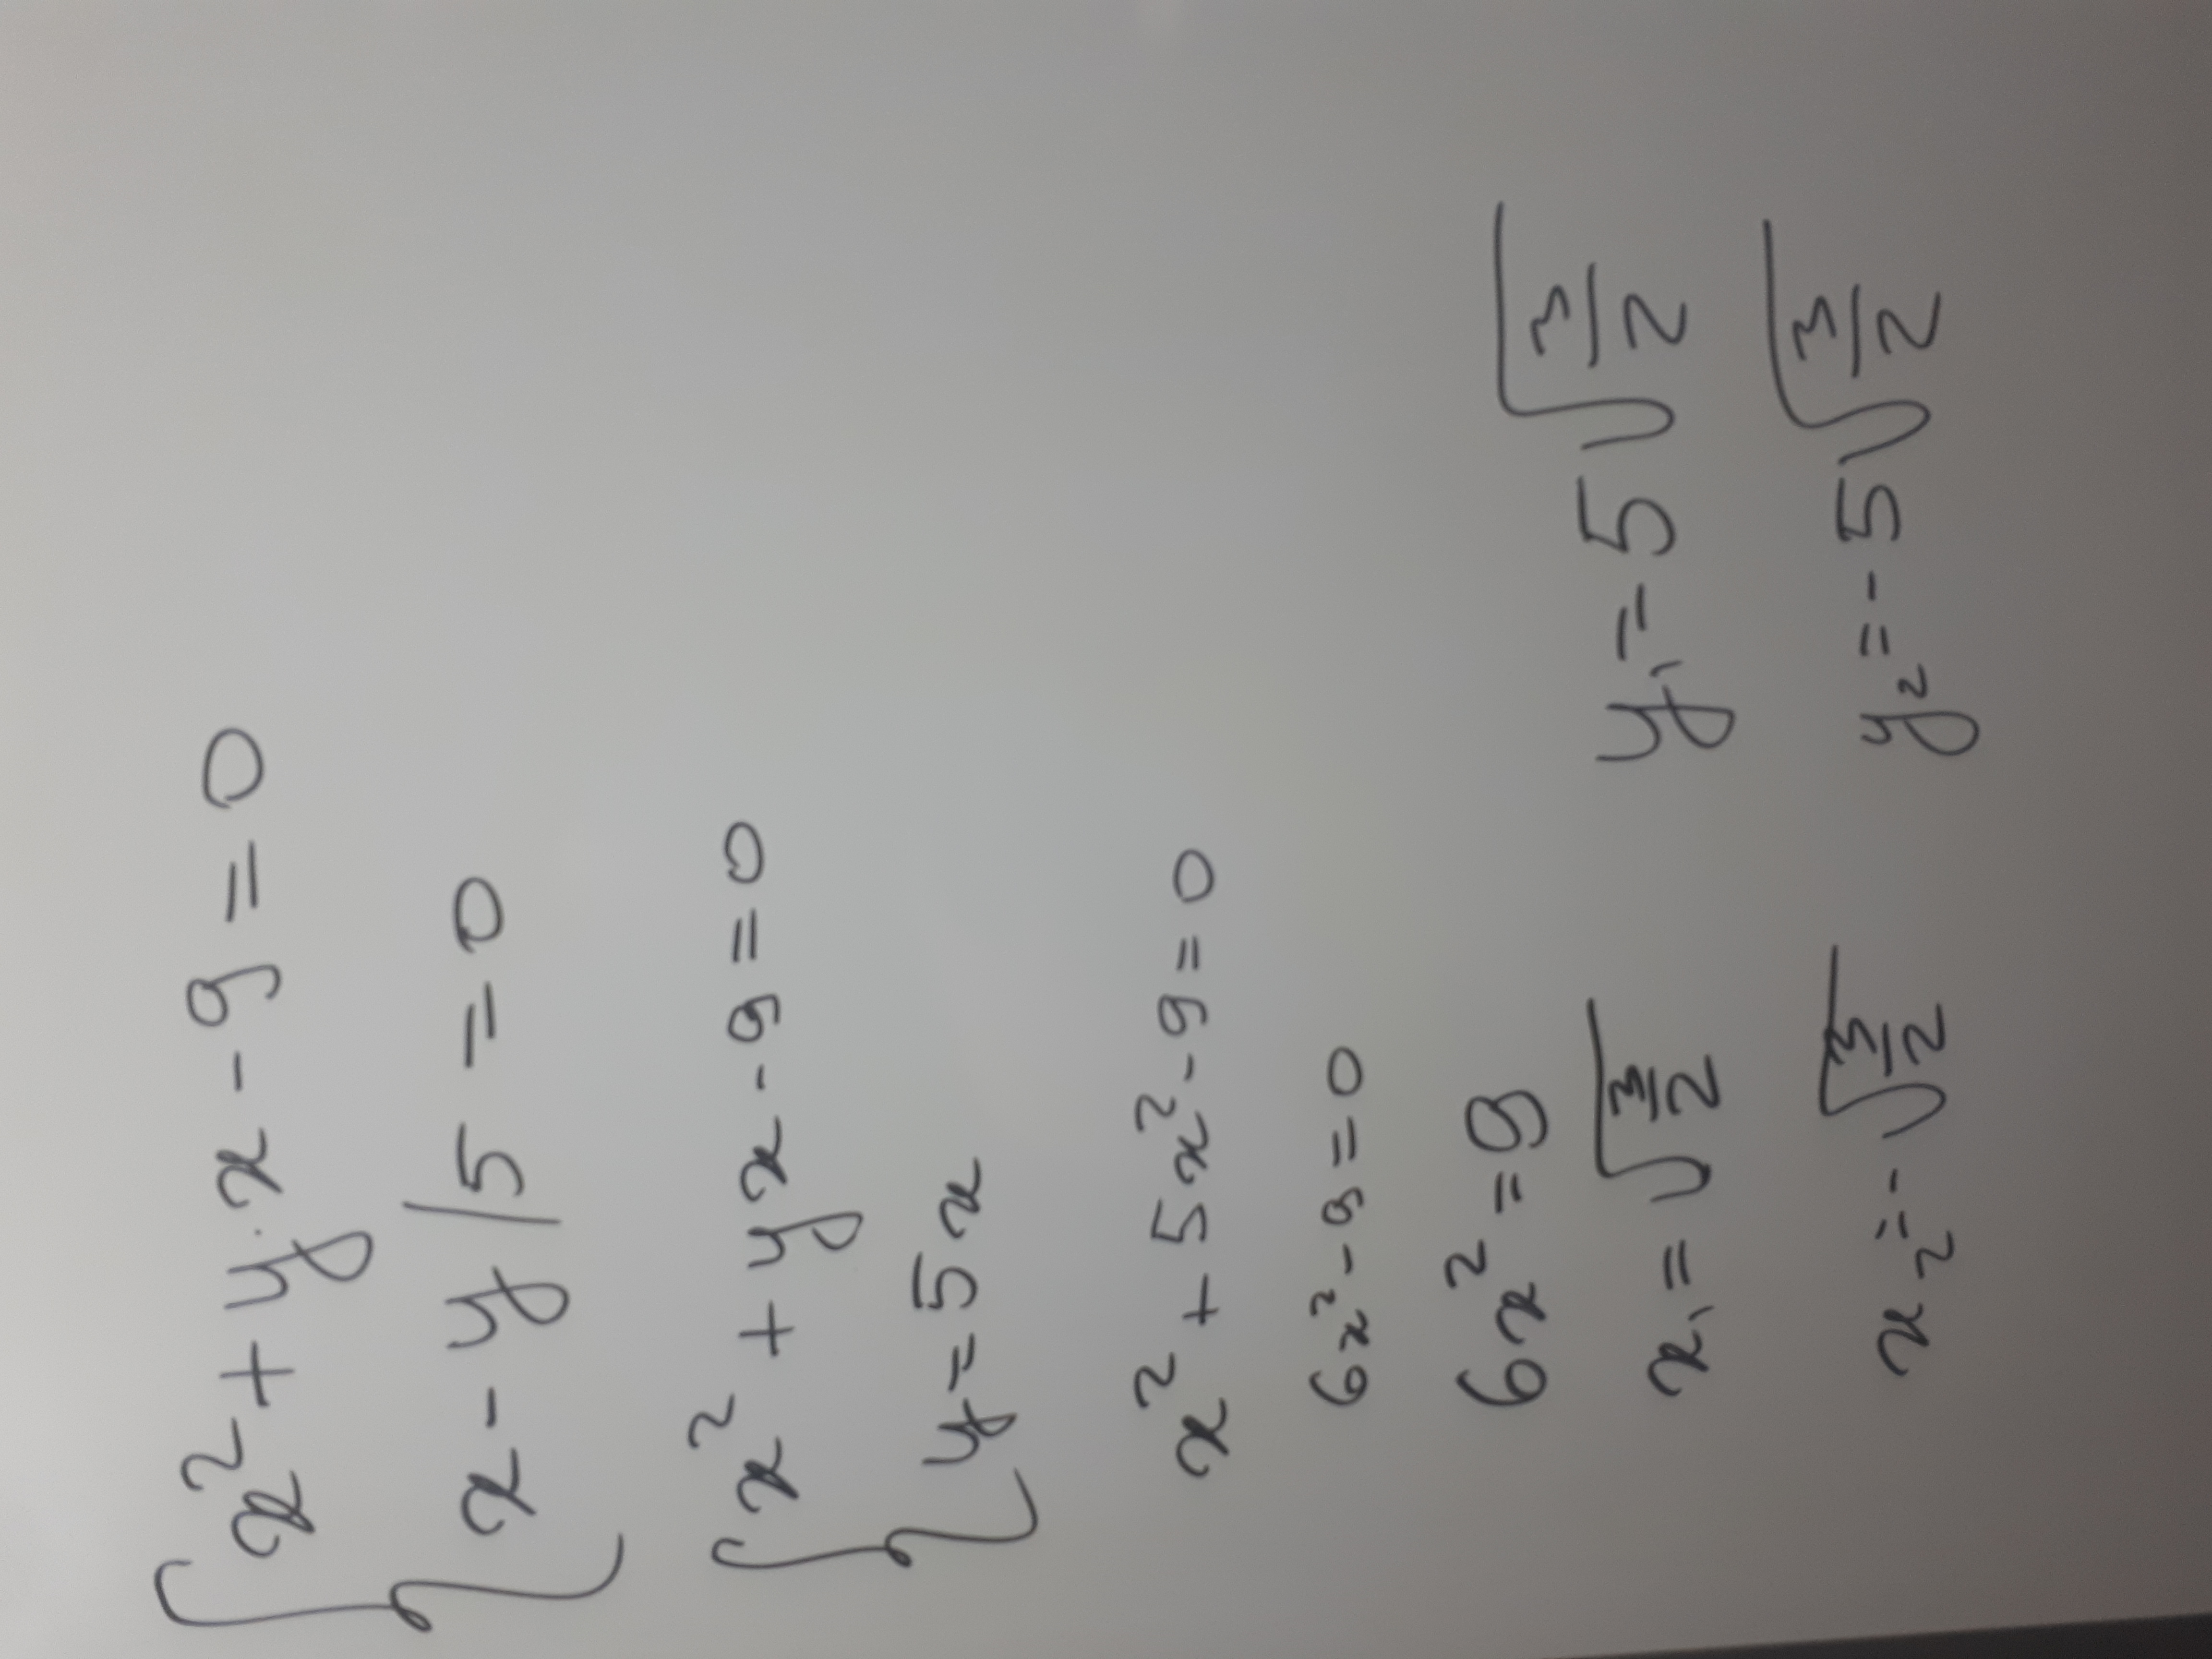 x² + y · x - 9 = 0
x - y / 5 = 0
x² + yx - 9 = 0
y = 5x
x² + 5x² - 9 = 0
6x² - 9 = 0
6x² = 9
x₁ = √(3/2) y₁ = 5√(3/2)
x₂ = -√(3/2) y₂ = -5√(3/2)